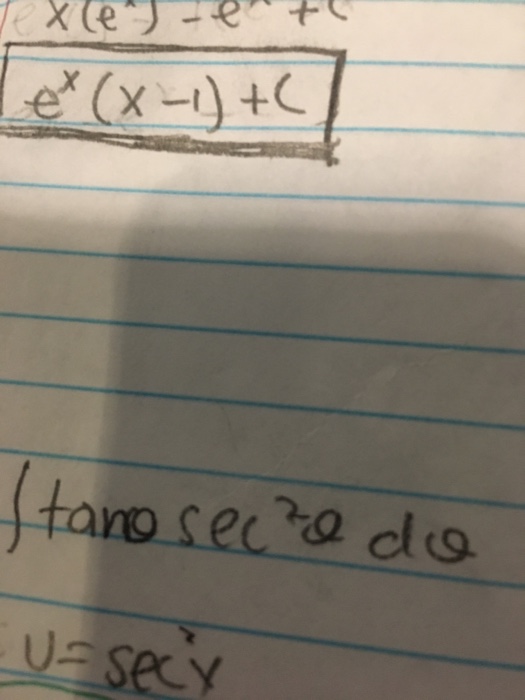 x(eˣ) - eˣ + C
eˣ(x-1) + C
∫tanθ sec²θ dθ
u = sec²x